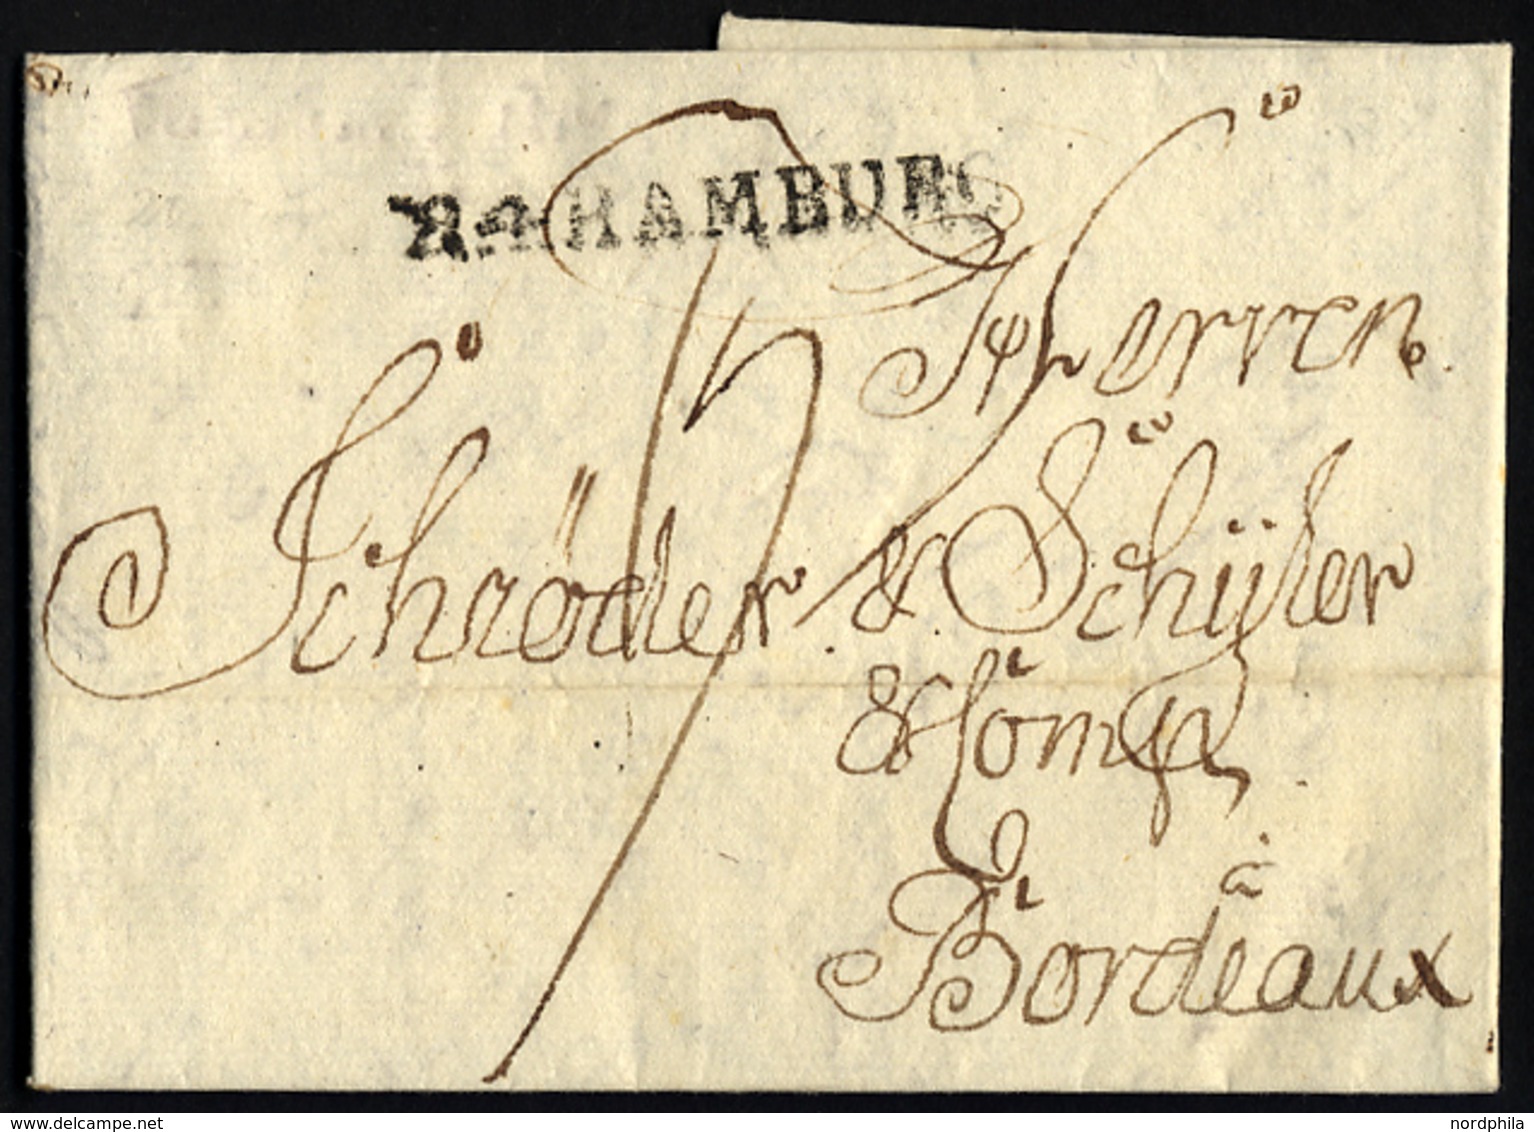 R.4 HAMBURG
Herren
Schröder & Schÿler
& Comp
Bordeaux
delcampe.net
nordphila